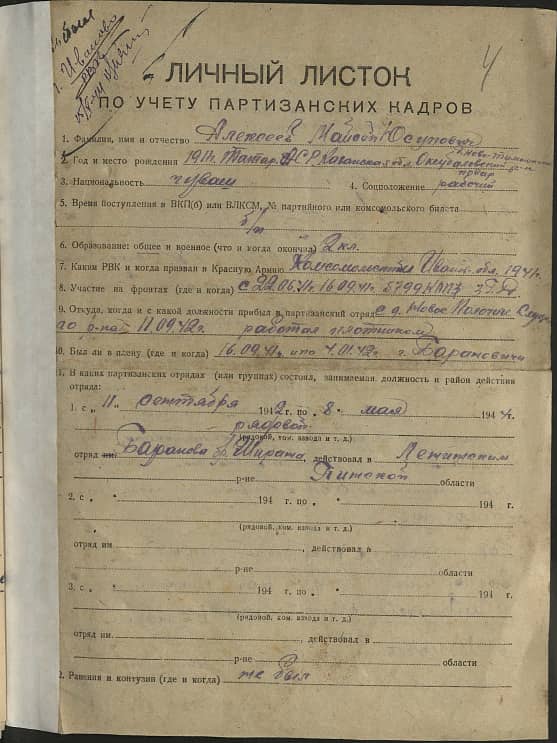 г. Иваново
РВК
4
ЛИЧНЫЙ ЛИСТОК
ПО УЧЕТУ ПАРТИЗАНСКИХ КАДРОВ
1. Фамилия, имя и отчество Алексеев Юсупович
2. Год и место рождения 1911г. Татар. АСР Казанская обл.
3. Национальность чуваш 4. Соцположение рабочий
5. Время поступления в ВКП(б) или ВЛКСМ, № партийного или комсомольского билета
б/п
6. Образование: общее и военное (что и когда окончил) 2 кл.
7. Каким РВК и когда призван в Красную Армию Иван. обл. 1941г.
8. Участие на фронтах (где и когда) с 22.06.41г. 16.09.41г.
9. Откуда, когда и с какой должности прибыл в партизанский отряд с д. Новое
го р-на 11.09.42г. работая плотником
10. Был ли в плену (где и когда) 16.09.41г. и по 4.01.42г. г. Барановичи
В каких партизанских отрядах (или группах) состоял, занимаемая должность и район действия
отряда:
1. с „ 11 „ сентября 1942г. по „ 8 „ мая 1944г.
рядовой
(рядовой, ком. взвода и т. д.)
отряд им. Баранова бр. Шираша, действовал в Ленинском
р-не Пинской области
2. с „ „ 194 г. по „ „ 194 г.
(рядовой, ком. взвода и т. д.)
отряд им. , действовал в
р-не области
3. с „ „ 194 г. по „ „ 194 г.
(рядовой, ком. взвода и т. д.)
отряд им. , действовал в
р-не области
2. Ранения и контузии (где и когда) не был